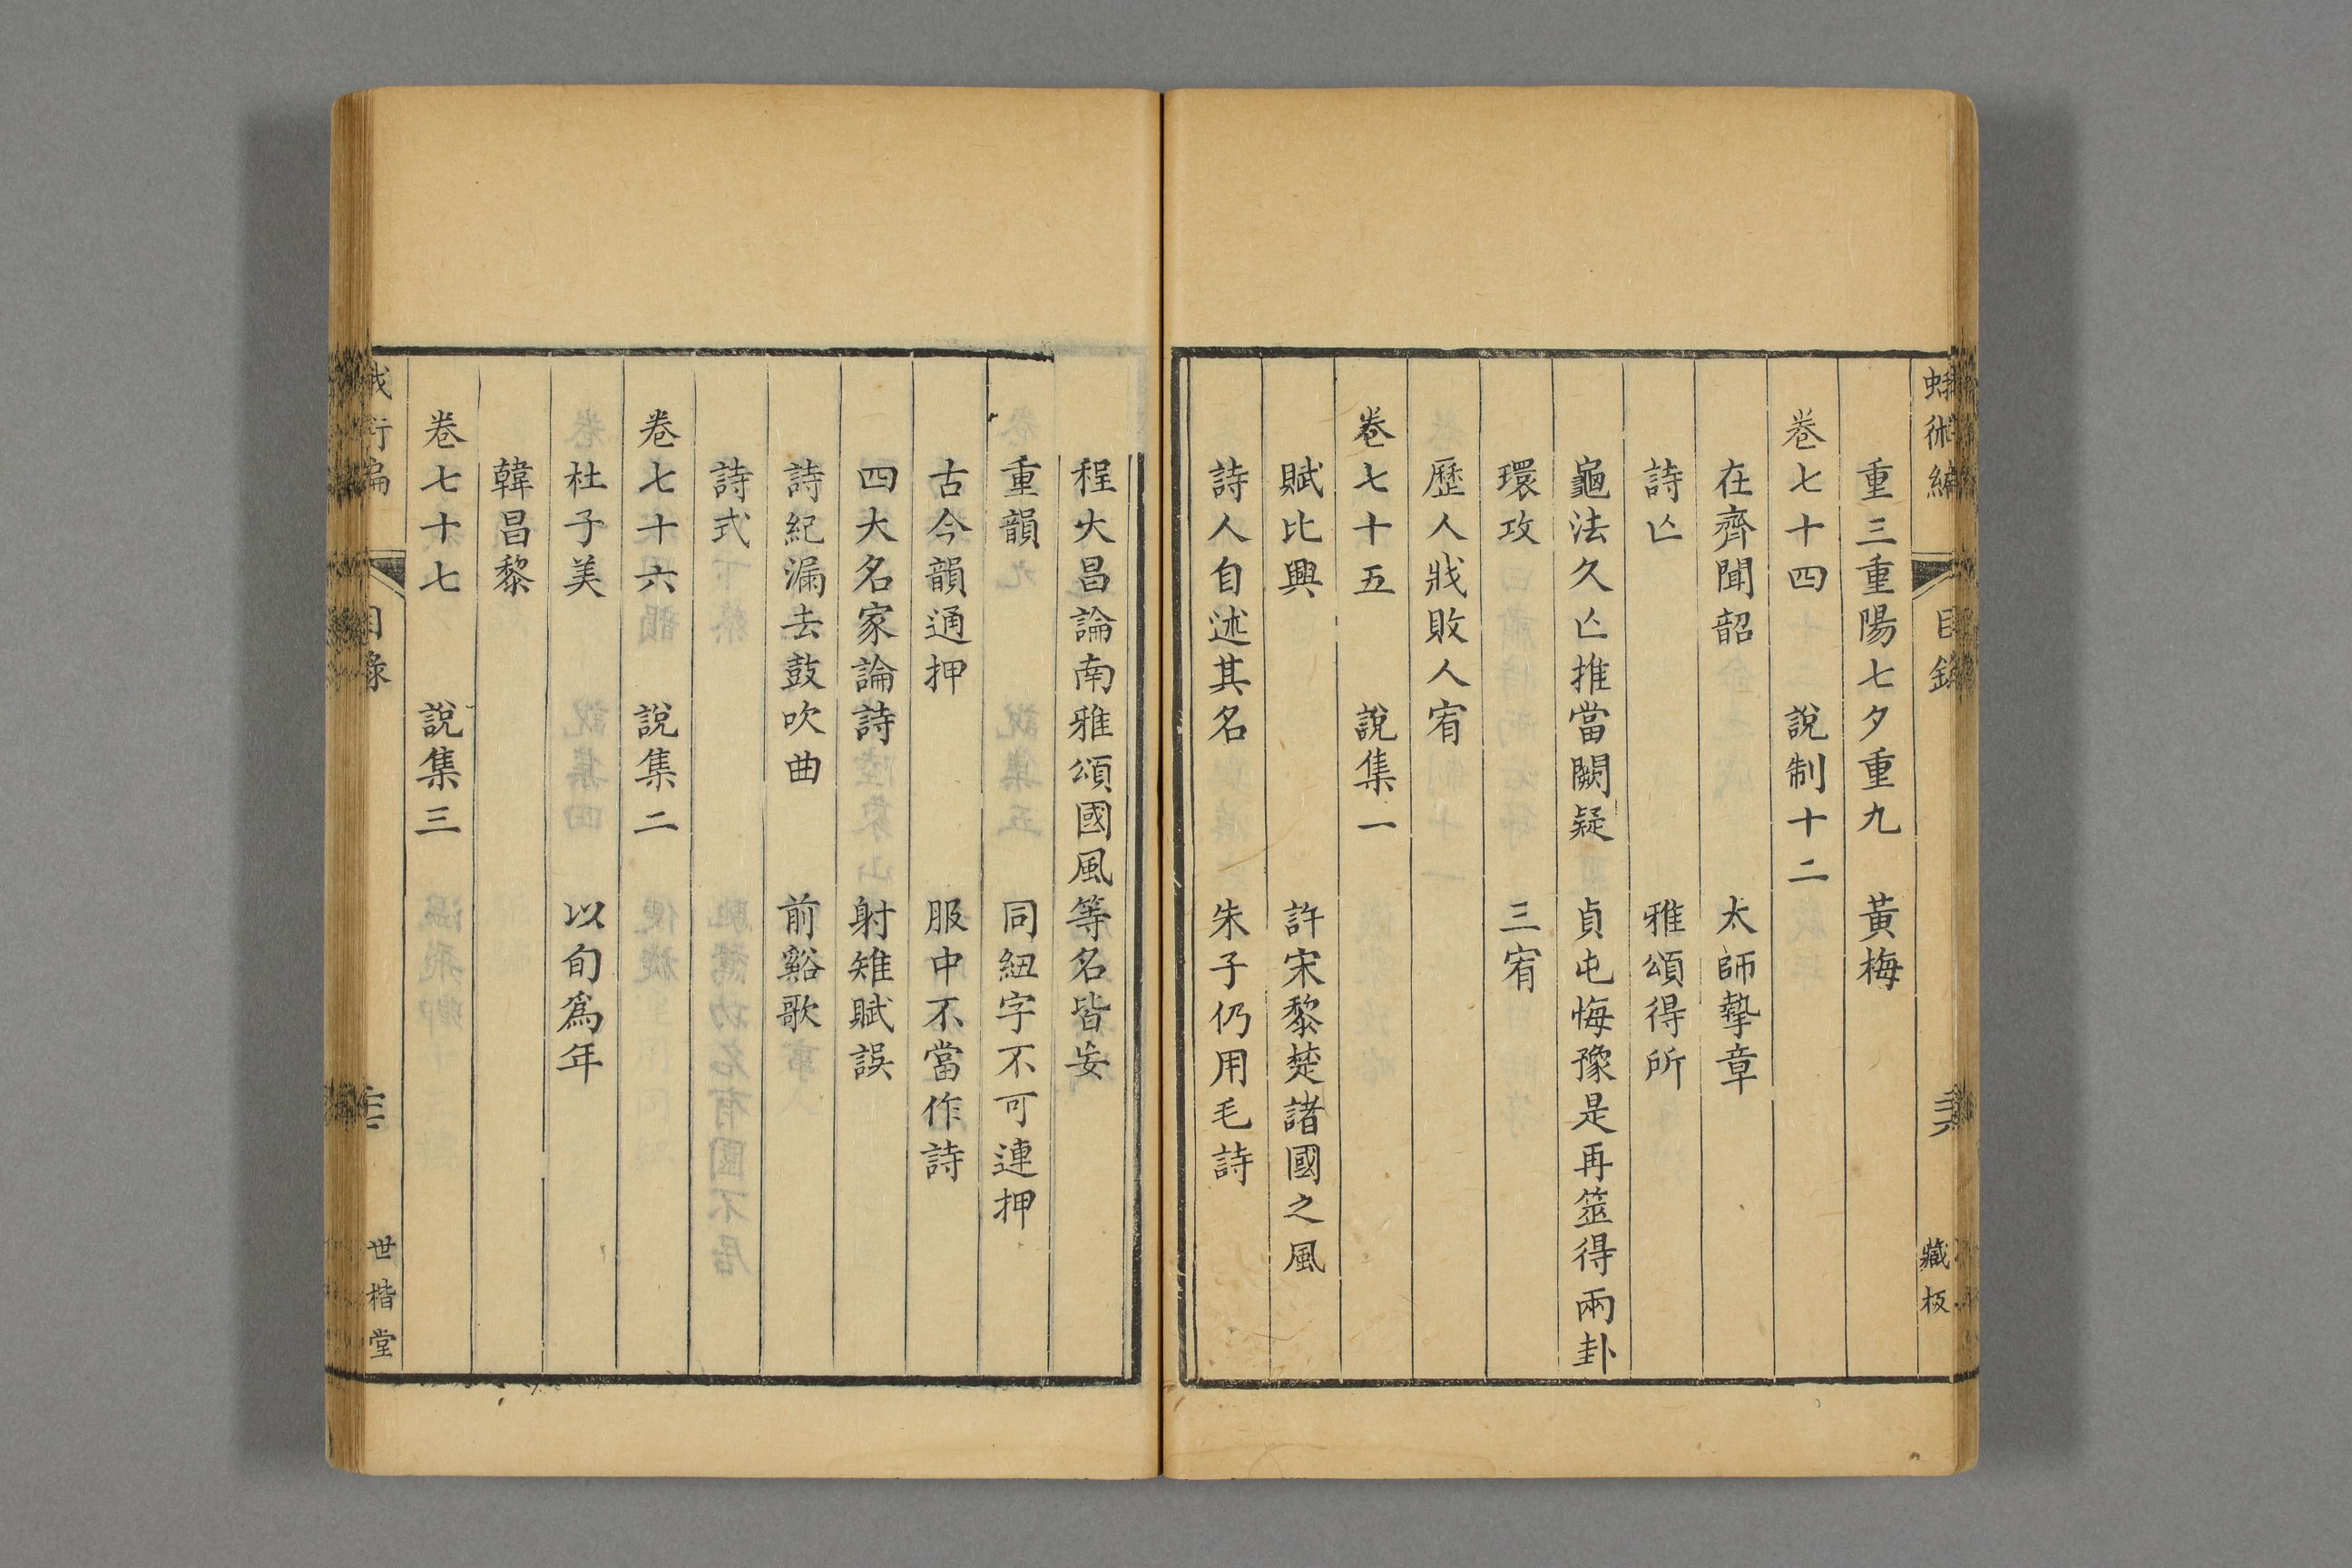 蛾術編 目錄 藏板
重三重陽七夕重九 黃梅
卷七十四 說制十二
在齊聞韶 太師摯章
詩亾 雅頌得所
龜法久亾推當闕疑 貞屯悔豫是再筮得兩卦
環攻 三宥
歷人戕敗人宥
卷七十五 說集一
賦比興 許宋黎楚諸國之風
詩人自述其名 朱子仍用毛詩
程大昌論南雅頌國風等名皆妄
重韻 同紐字不可連押
古今韻通押 服中不當作詩
四大名家論詩 射雉賦誤
詩紀漏去鼓吹曲 前谿歌
詩式
卷七十六 說集二
杜子美 以旬爲年
韓昌黎
卷七十七 說集三
蛾術編 目錄 世楷堂